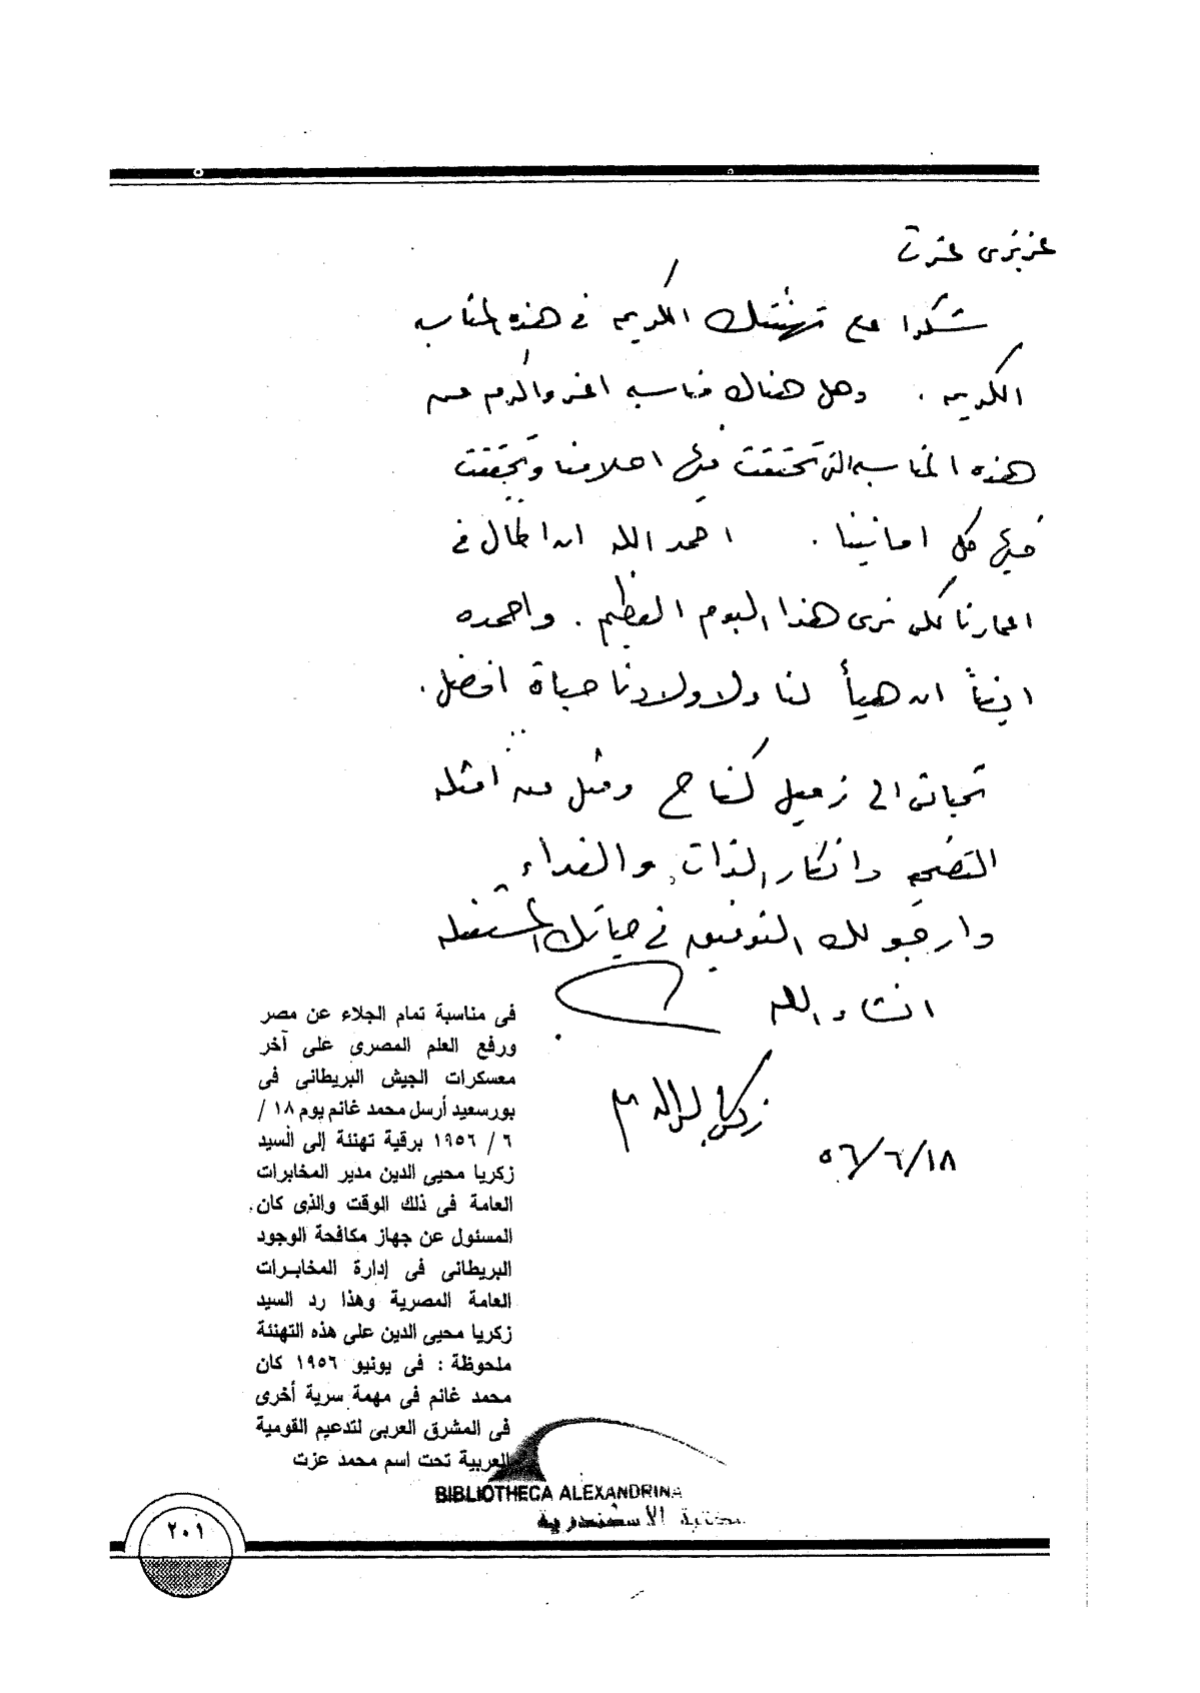 عزيزى عزت
شكرا على تهنئتك الكريمه فى هذه المناسبه
الكريمه . وهل هناك مناسبه اعز واكرم من
هذه المناسبه التى تحققت فيها احلامنا وتحققت
فيها كل امانينا . احمد الله ان اطال فى
اعمارنا لكى نرى هذا اليوم العظيم . واحمده
ايضاً ان هيأ لنا ولاولادنا حياة افضل .
تحياتى الى زميل كفاح ومثل من أمثله
التضحيه وانكار الذات والفداء
وارجو لك التوفيق فى حياتك المستقبله
انشاء الله
زكريا محيى الدين
٥٦/٦/١٨
فى مناسبة تمام الجلاء عن مصر
ورفع العلم المصرى على آخر
معسكرات الجيش البريطانى فى
بورسعيد أرسل محمد غانم يوم ١٨ /
٦ / ١٩٥٦ برقية تهنئة إلى السيد
زكريا محيى الدين مدير المخابرات
العامة فى ذلك الوقت والذى كان
المسئول عن جهاز مكافحة الوجود
البريطانى فى إدارة المخابرات
العامة المصرية وهذا رد السيد
زكريا محيى الدين على هذه التهنئة
ملحوظة : فى يونيو ١٩٥٦ كان
محمد غانم فى مهمة سرية أخرى
فى المشرق العربى لتدعيم القومية
العربية تحت اسم محمد عزت
BIBLIOTHECA ALEXANDRINA
مكتبة الاسكندرية
٢٠١